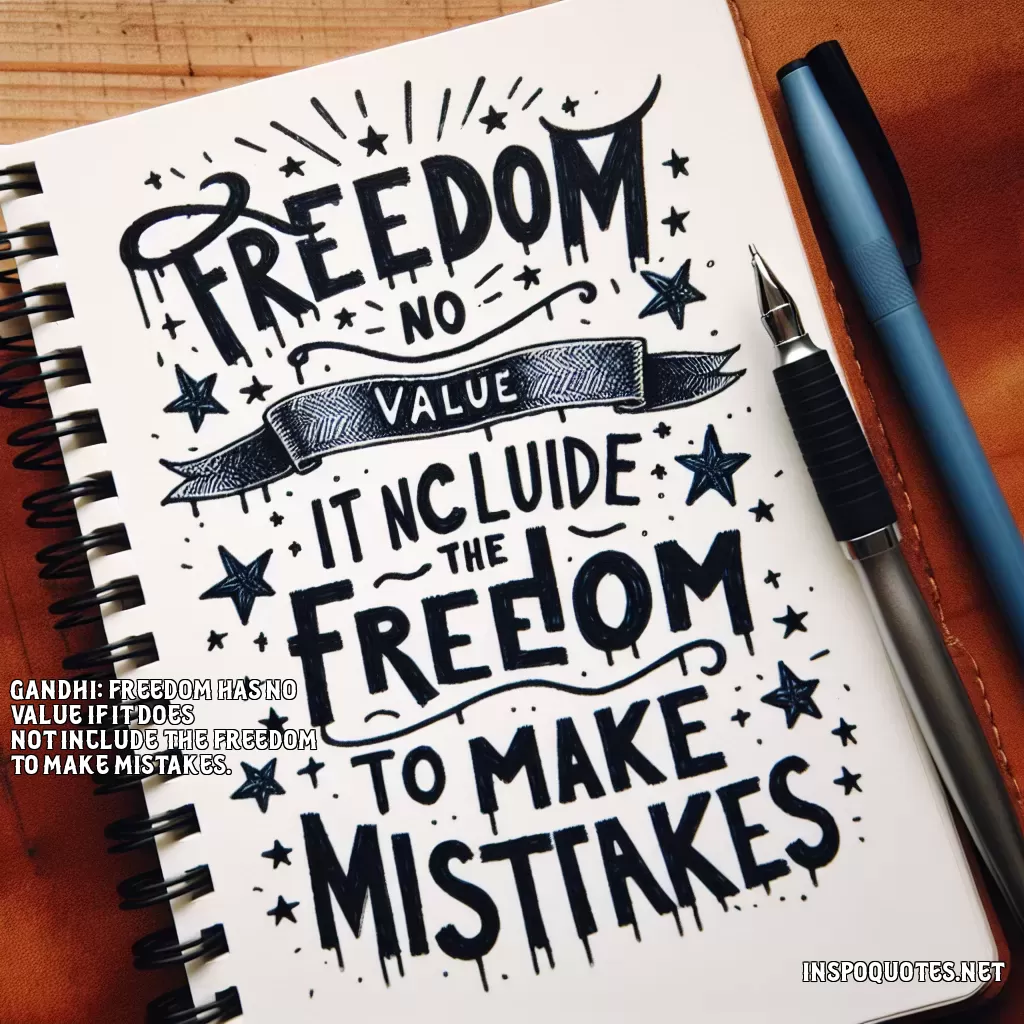 FREEDOM
NO
VALUE
IT NCLUIDE
THE
FREEDOM
TO MAKE
MISTTAKES
GANDHI: FREEDOM HAS NO
VALUE IF IT DOES
NOT INCLUDE THE FREEDOM
TO MAKE MISTAKES.
INSPOQUOTES.NET